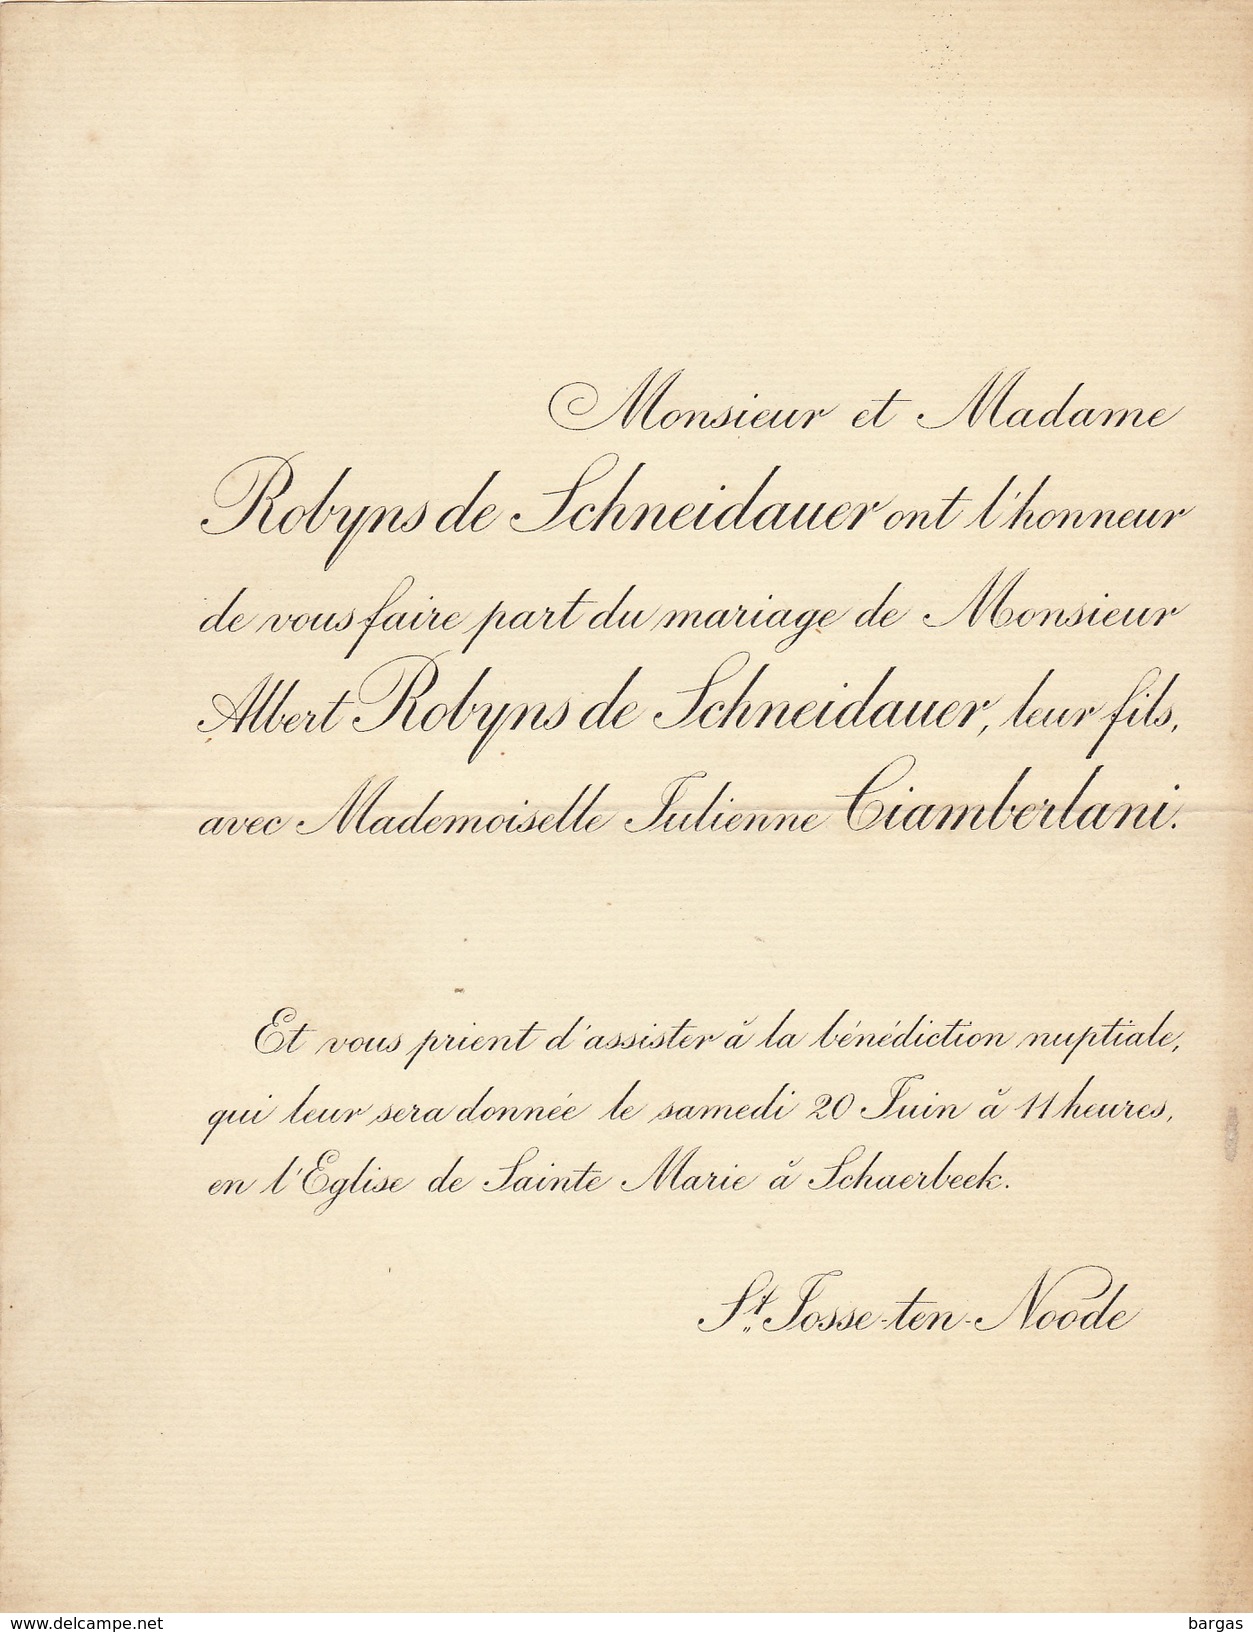 Monsieur et Madame
Robyns de Schneidauer ont l'honneur
de vous faire part du mariage de Monsieur
Albert Robyns de Schneidauer, leur fils,
avec Mademoiselle Julienne Ciamberlani.
Et vous prient d'assister à la bénédiction nuptiale,
qui leur sera donnée le samedi 20 Juin à 11 heures,
en l'Eglise de Sainte Marie à Schaerbeek.
St. Josse-ten-Noode
https://www.delcampe.net
bargas